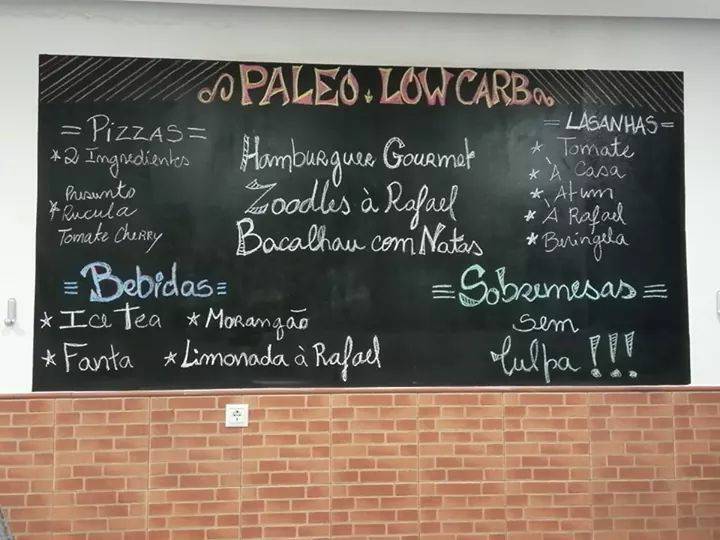 PALEO LOW CARB
= PIZZAS =
* 2 Ingredientes
Presunto
* Rucula
Tomate Cherry
Hamburguer Gourmet
Zoodles à Rafael
Bacalhau com Natas
= LASANHAS =
* Tomate
* À Casa
* Atum
* À Rafael
* Beringela
≡ Bebidas ≡
* Ice Tea * Morangão
* Fanta * Limonada à Rafael
= Sobremesas =
Sem
Culpa!!!